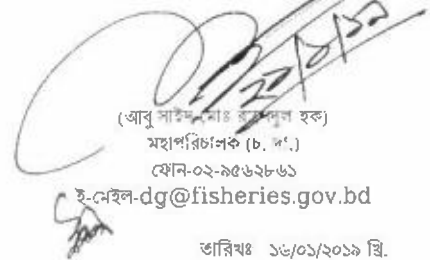 (আবু সাইদ মোঃ রাশেদুল হক)
মহাপরিচালক (চ. দা.)
ফোন-০২-৯৫৬২৮৬১
ই-মেইল-dg@fisheries.gov.bd
তারিখঃ ১৬/০১/২০১৯ খ্রি.